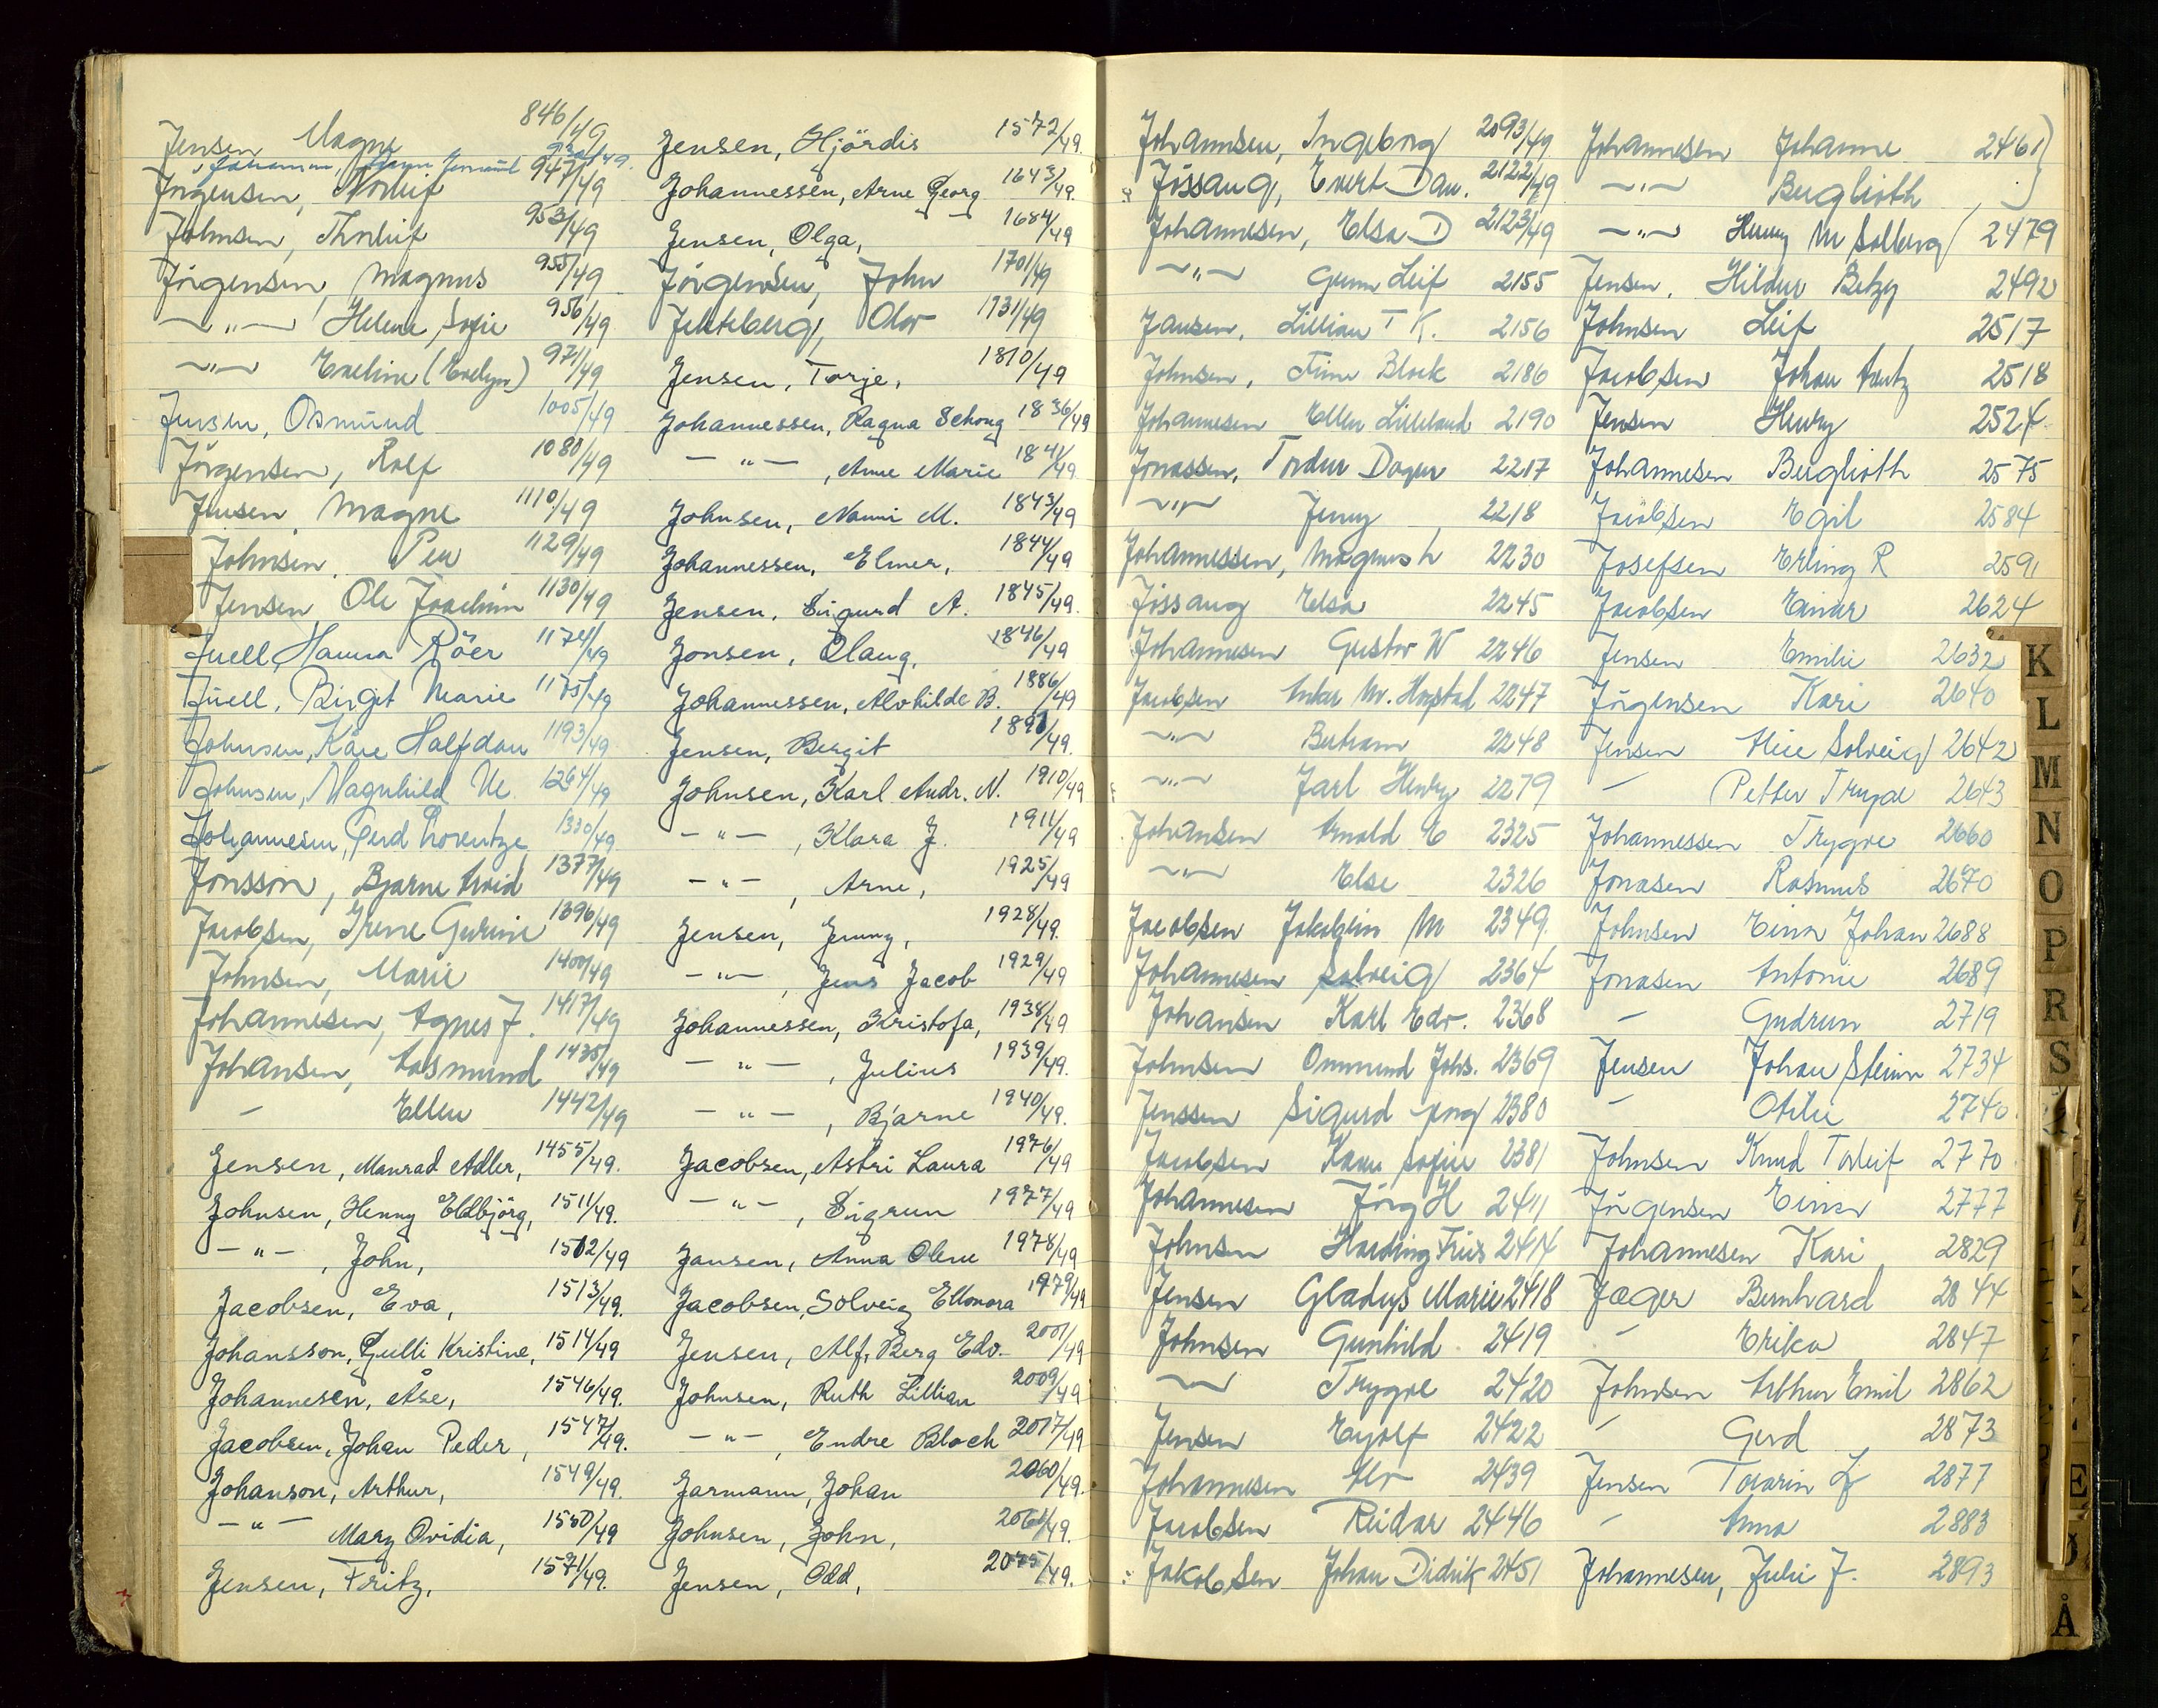 Jensen Magne 846/49
Jörgensen, Torleif 947/49
Johnsen, Thorleif 953/49
Jörgensen, Magnus 955/49
—"— Helene Sofie 956/49
—"— Eveline (Evelyn) 971/49
Jensen, Osmund 1005/49
Jörgensen, Rolf 1080/49
Jensen, Magne 1110/49
Johnsen, Per 1129/49
Jensen Ole Joachim 1130/49
Juell, Hanna Röer 1174/49
Juell, Birgit Marie 1175/49
Johnsen, Kåre Halfdan 1193/49
Johnsen, Magnhild 1264/49
Johannesen, Gerd Lorentze 1330/49
Jonsson, Bjarne Arvid 1377/49
Jacobsen, Irene Gurine 1396/49
Johnsen, Marie 1400/49
Johannesen, Agnes J. 1417/49
Johansen, Aasmund 1435/49
— Ellen 1442/49
Jensen, Manrad Adler, 1455/49.
Johnsen, Henny Eldbjörg, 1511/49.
—"—, John, 1512/49
Jacobsen, Eva, 1513/49.
Johansson, Gulli Kristine, 1514/49
Johannesen, Åse, 1546/49.
Jacobsen, Johan Peder, 1547/49.
Johanson, Arthur, 1549/49.
—"— Mary Ovidia, 1550/49
Jensen, Fritz, 1571/49.
Jensen, Hjördis 1572/49.
Johannessen, Arne Georg 1643/49.
Jensen, Olga, 1684/49
Jörgensen, John 1701/49
Olav 1731/49
Jensen, Torje, 1810/49
Johannessen, Ragna Sehong 1836/49
—"—, Anne Marie 1841/49
Johnsen, Nanni M. 1843/49
Johannessen, Elmer, 1844/49
Jensen, Sigurd A. 1845/49.
Jonsen, Olaug, 1846/49
Johannessen, Alvhilde B. 1886/49
Jensen, Bergit 1891/49.
Johnsen, Karl Andr. N. 1910/49
—"—, Klara J. 1911/49
—"—, Arne, 1925/49
Jensen, Jenny, 1928/49.
—"—, Jens Jacob 1929/49
Johannessen, Kristofa, 1938/49
—"—, Julius 1939/49.
—"—, Bjarne 1940/49.
Jacobsen, Astri Laura 1976/49
—"—, Sigrun 1977/49
Jansen, Anna Olene 1978/49
Jacobsen, Solveig Ellonora 1979/49
Jensen, Alf, Berg Edv. 2001/49
Johnsen, Ruth Lillian 2009/49
—"—, Endre Block 2017/49
Jarmann, Johan 2060/49.
Johnsen, John, 2061/49.
Jensen, Odd, 2075/49.
Johannsen, Ingeborg 2093/49
Jössang, Evert Dan. 2122/49
Johannesen, Elsa D 2123/49
—"— Gunn Leif 2155
Jansen, Lillian T K. 2156
Johnsen, Fine Block 2186
Johannesen Ellen Lilleland 2190
Jonassen, Tordur Dagur 2217
—"— Jenny 2218
Johannessen, Magnus h 2230
Jössang Elsa 2245
Johannesen Gustav W 2246
Jacobsen 2247
—"— Bertram 2248
—"— Jarl Henry 2279
Johansen Arnold E 2325
—"— Else 2326
Jacobsen Jakobine M 2349.
Johannesen Solveig 2364
Johansen Karl Edv. 2368
Johnsen Ommund Johs. 2369
Jenssen Sigurd 2380
Jacobsen Karen Sofie 2381
Johannesen Jörg H 2411
Johnsen Harding Friis 2414
Jensen Gladys Marie 2418
Johnsen Gunhild 2419
—"— Trygve 2420
Jensen Eyolf 2422
Johannesen Alv 2439
Jacobsen Reidar 2446
Jakobsen Johan Didrik 2451
Johannesen Johanne 2461)
—"— Berglioth
—"— Henny M Solberg 2479
Jensen, Hildur Betzy 2492
Johnsen Leif 2517
Jacobsen Johan Arntz 2518
Jensen Henry 2524
Johannesen Berglioth 2575
Jacobsen Egil 2584
Josefsen Erling R 2591
Jacobsen Einar 2624
Jensen Emilie 2632
Jörgensen Kari 2640
Jensen Alice Solveig 2642
— Petter Trygve 2643
Johannessen Trygve 2660
Jonasen Rasmus 2670
Johnsen Einar Johan 2688
Jonasen Antonie 2689
— Gudrun 2719
Jensen Johan Steinar 2734
— Otilie 2740
Johnsen Knud Torleif 2770
Jörgensen Einar 2777
Johannesen Kari 2829
Jæger Bernhard 2844
— Erika 2847
Johnsen Arthur Emil 2862
— Gerd 2873
Jensen 2877
— Anna 2883
Johannesen, Julie J. 2893
K
L
M
N
O
P
R
S
E
Å